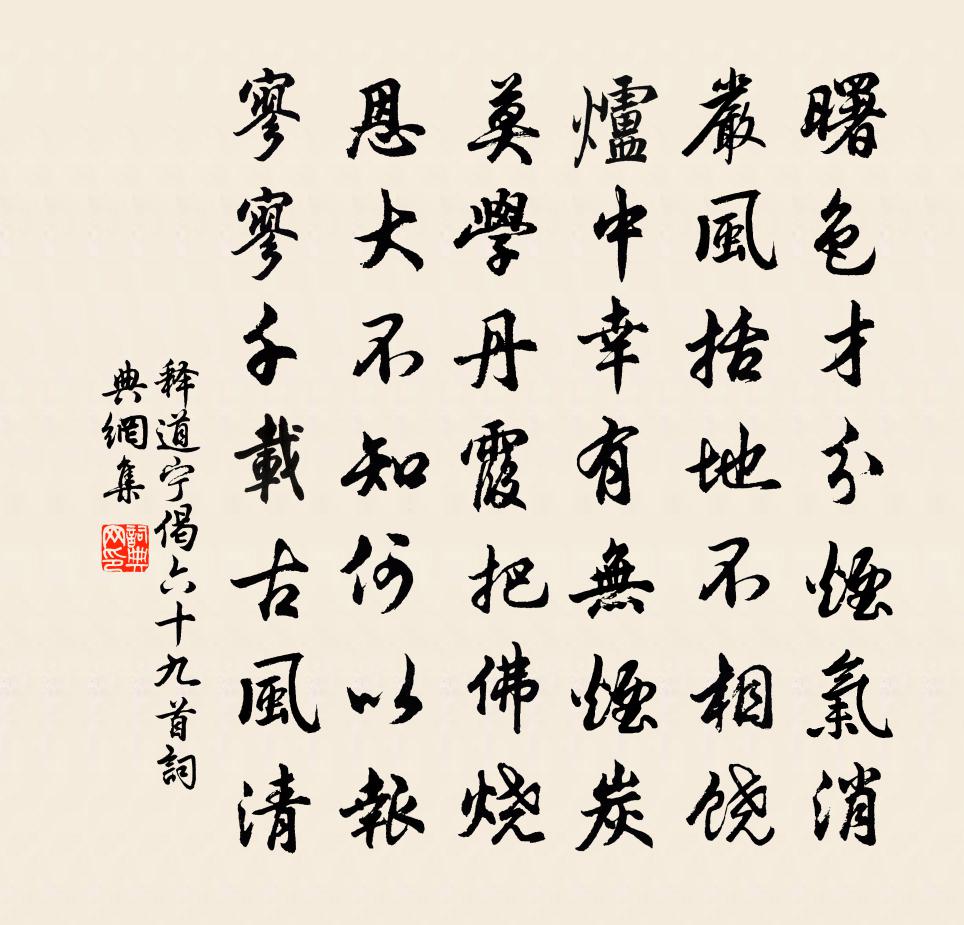 曙色才分煙氣消
嚴風括地不相饶
爐中幸有無煙炭
莫學丹霞把佛烧
恩大不知何以報
寥寥千載古風清
释道宁偈六十九首詞
典網集
詞典
网印